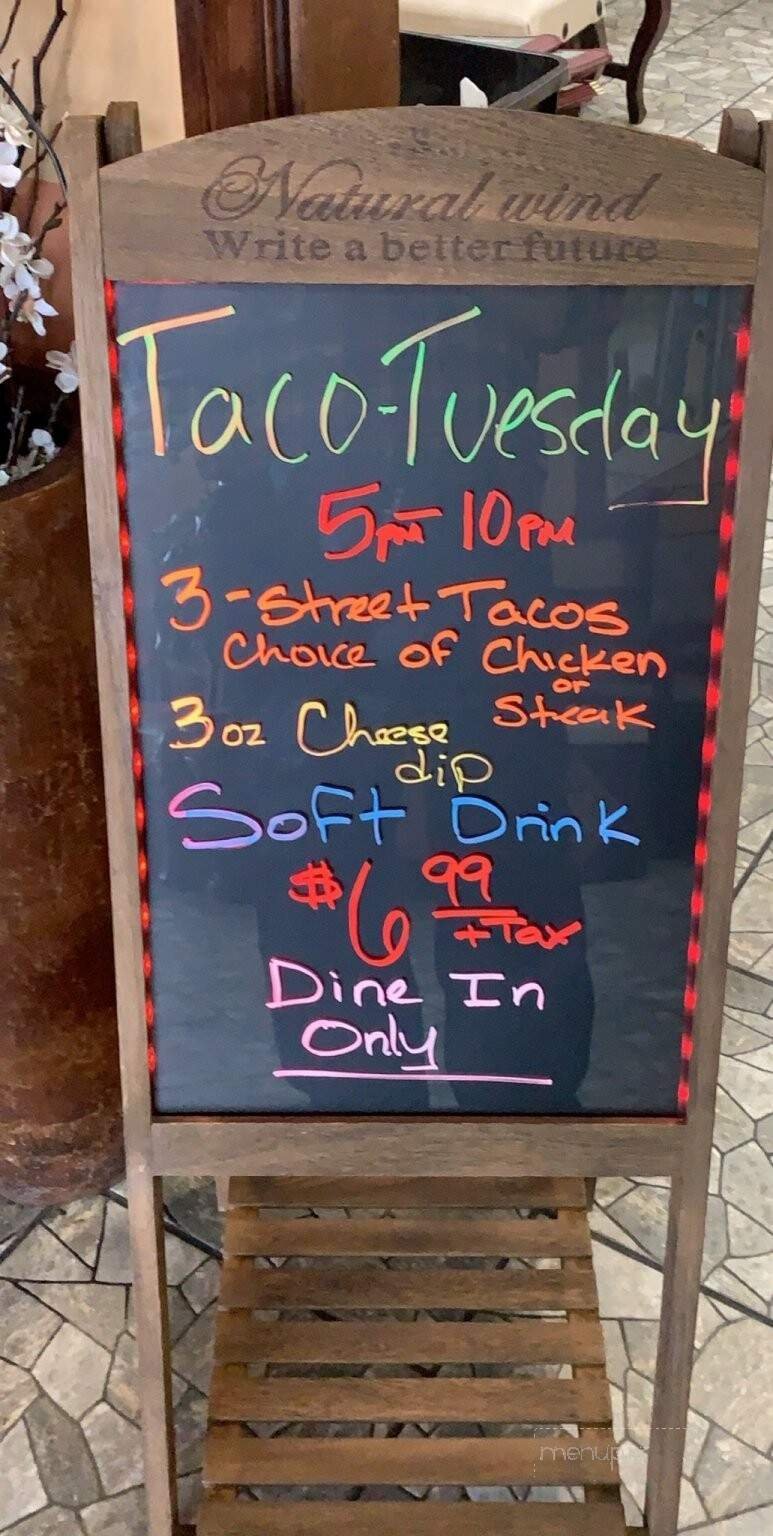 Natural wind
Write a better future
Taco-Tuesday
5pm-10PM
3-Street Tacos
Choice of Chicken
or
Steak
3oz Cheese
dip
Soft Drink
$6 99
+Tax
Dine In
Only